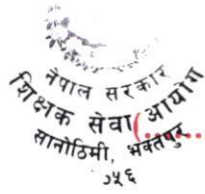 नेपाल सरकार
शिक्षक सेवा आयोग
सानोठिमी, भक्तपुर
२५६